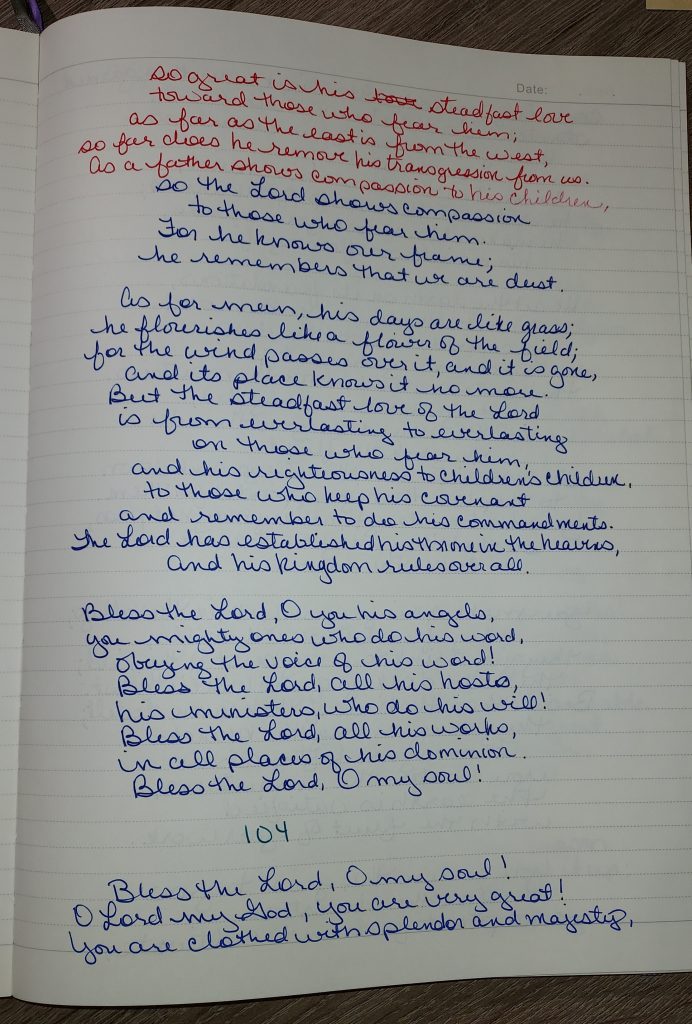 Date:
so great is his love steadfast love
toward those who fear him;
as far as the east is from the west,
so far does he remove his transgression from us.
As a father shows compassion to his children,
so the Lord shows compassion
to those who fear him.
For he knows our frame;
he remembers that we are dust.
As for man, his days are like grass;
he flourishes like a flower of the field;
for the wind passes over it, and it is gone,
and its place knows it no more.
But the steadfast love of the Lord
is from everlasting to everlasting
on those who fear him,
and his righteousness to children's children,
to those who keep his covenant
and remember to do his commandments.
The Lord has established his throne in the heavens,
and his kingdom rules over all.
Bless the Lord, O you his angels,
you mighty ones who do his word,
obeying the voice of his word!
Bless the Lord, all his hosts,
his ministers, who do his will!
Bless the Lord, all his works,
in all places of his dominion.
Bless the Lord, O my soul!
104
Bless the Lord, O my soul!
O Lord my God, you are very great!
You are clothed with splendor and majesty,